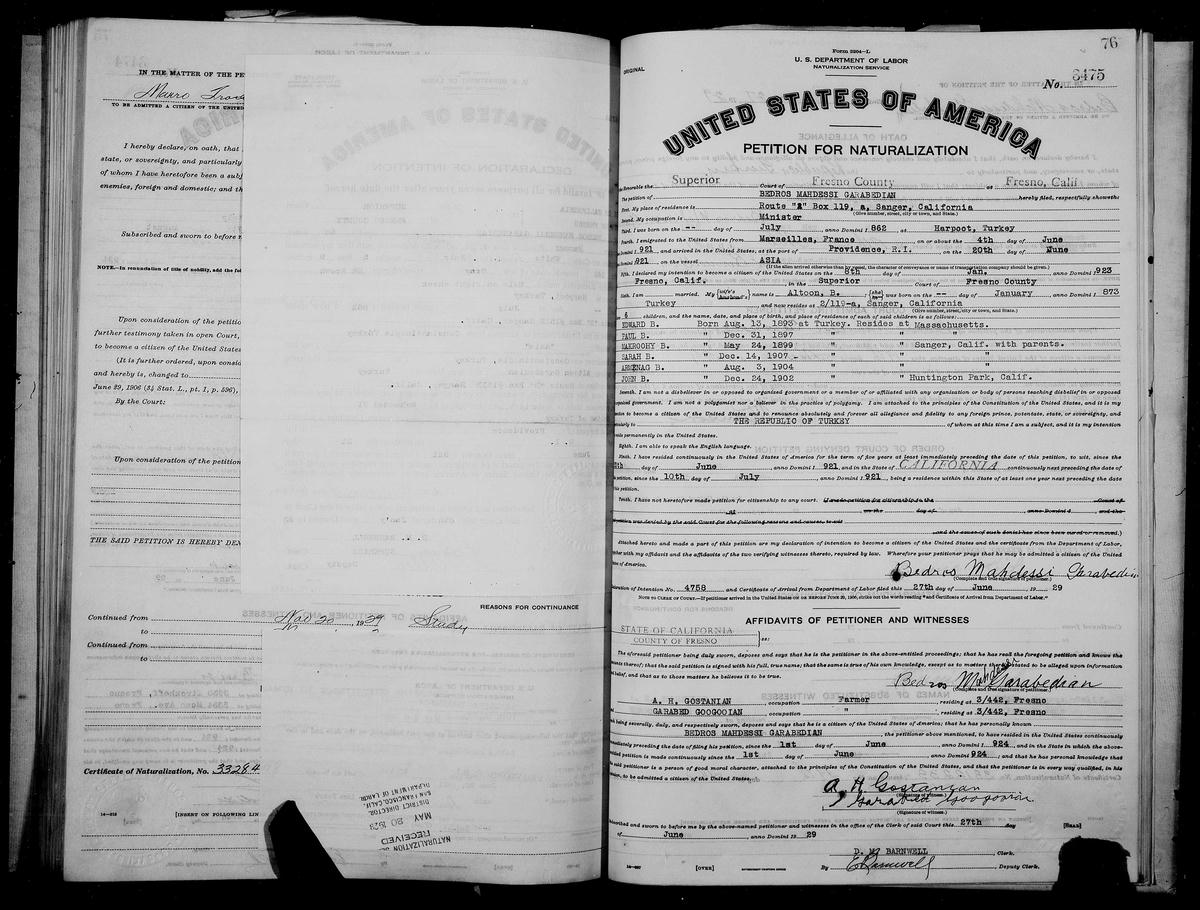 IN THE MATTER OF THE PE
Mauro
TO BE ADMITTED A CITIZEN OF THE UNITED
I hereby declare, on oath, that
state, or sovereignty, and particularly
of whom I have heretofore been a subj
enemies, foreign and domestic; and th
Subscribed and sworn to before
NOTE.—In renunciation of title of nobility, add the fol
Upon consideration of the petitio
further testimony taken in open Court,
to become a citizen of the United States
(It is further ordered, upon consid
and hereby is, changed to
June 29, 1906 (34 Stat. L., pt. 1, p. 596),
By the Court:
Upon consideration of the petition
THE SAID PETITION IS HEREBY DEN
REASONS FOR CONTINUANCE
Continued from Nov 20, 1929 Study
to
Continued from
to
Certificate of Naturalization, No. 33284
14—618 [INSERT ON FOLLOWING LIN
NATURALIZATION
RECEIVED
MAY 20 1929
DISTRICT DIRECTOR,
SAN FRANCISCO, CALIF.
DEPARTMENT OF LABOR
76
Form 2204—L
ORIGINAL
U. S. DEPARTMENT OF LABOR
NATURALIZATION SERVICE
No. 3475
UNITED STATES OF AMERICA
PETITION FOR NATURALIZATION
Honorable the Superior Court of Fresno County at Fresno, Calif
The petition of BEDROS MAHDESSI GARABEDIAN hereby filed, respectfully showeth:
First. My place of residence is Route "2" Box 119, a, Sanger, California
(Give number, street, city or town, and State.)
Second. My occupation is Minister
Third. I was born on the -- day of July anno Domini 1 862 at Harpoot, Turkey
Fourth. I emigrated to the United States from Marseilles, France on or about the 4th day of June
Domini 1 921 and arrived in the United States, at the port of Providence, R.I. on the 20th day of
Domini 1 921 on the vessel ASIA
(If the alien arrived otherwise than by vessel, the character of conveyance or name of transportation company should be given.)
Fifth. I declared my intention to become a citizen of the United States on the 8th day of Jan. anno Domini 1 923
Fresno, Calif. in the Superior Court of Fresno County
Sixth. I am married. My wife's name is Altoon, B. she was born on the -- day of January anno Domini 1 873
Turkey and now resides at 2/119-a, Sanger, California
(Give number, street, city or town, and State.)
6 children, and the name, date, and place of birth, and place of residence of each of said children is as follows:
EDWARD B. Born Aug. 13, 1893 at Turkey. Resides at Massachusetts.
PAUL B. " Dec. 31, 1897 " "
MAKROOHY B. " May 24, 1899 " " Sanger, Calif. with parents.
SARAH B. " Dec. 14, 1907 - " " "
ARSENAG B. " Aug. 3, 1904 " " "
JOHN B. " Dec. 24, 1902 " " Huntington Park, Calif.
Seventh. I am not a disbeliever in or opposed to organized government or a member of or affiliated with any organization or body of persons teaching disbelief in or opposed
government. I am not a polygamist nor a believer in the practice of polygamy. I am attached to the principles of the Constitution of the United States, and it is my
to become a citizen of the United States and to renounce absolutely and forever all allegiance and fidelity to any foreign prince, potentate, state, or sovereignty, and
to THE REPUBLIC OF TURKEY of whom at this time I am a subject, and it is my intention
permanently in the United States.
Eighth. I am able to speak the English language.
Ninth. I have resided continuously in the United States of America for the term of five years at least immediately preceding the date of this petition, to wit, since the
day of June anno Domini 1 921, and in the State of CALIFORNIA continuously next preceding the date of
petition, since the 10th day of July anno Domini 1 921, being a residence within this State of at least one year next preceding the date
this petition.
Tenth. I have not heretofore made petition for citizenship to any court. (I made petition for citizenship to the Court of
at on the day of anno Domini 1 and the
petition was denied by the said Court for the following reasons and causes, to wit
and the cause of such denial has since been cured or removed.)
Attached hereto and made a part of this petition are my declaration of intention to become a citizen of the United States and the certificate from the Department of Labor,
with my affidavit and the affidavits of the two verifying witnesses thereto, required by law. Wherefore your petitioner prays that he may be admitted a citizen of the United
of America.
Bedros Mahdessi Garabedian
(Complete and true signature of petitioner.)
Declaration of Intention No. 4758 and Certificate of Arrival from Department of Labor filed this 27th day of June 19 29
NOTE TO CLERK OF COURT.—If petitioner arrived in the United States ON OR BEFORE JUNE 29, 1906, strike out the words reading "and Certificate of Arrival from Department of Labor."
AFFIDAVITS OF PETITIONER AND WITNESSES
STATE OF CALIFORNIA
COUNTY OF FRESNO ss:
The aforesaid petitioner being duly sworn, deposes and says that he is the petitioner in the above-entitled proceedings; that he has read the foregoing petition and knows the
contents thereof; that the said petition is signed with his full, true name; that the same is true of his own knowledge, except as to matters therein stated to be alleged upon information
belief, and that as to those matters he believes it to be true.
Bedros Mahdessi Garabedian
(Complete and true signature of petitioner.)
A. H. GOSTANIAN occupation Farmer residing at 3/442, Fresno
GARABED GOOGOOIAN occupation " residing at 3/442, Fresno
each being severally, duly, and respectively sworn, deposes and says that he is a citizen of the United States of America; that he has personally known
BEDROS MAHDESSI GARABEDIAN the petitioner above mentioned, to have resided in the United States continuously
immediately preceding the date of filing his petition, since the 1st day of June anno Domini 1 924, and in the State in which the above-
petition is made continuously since the 1st day of June anno Domini 1 924; and that he has personal knowledge that
said petitioner is a person of good moral character, attached to the principles of the Constitution of the United States, and that the petitioner is in every way qualified, in his
opinion, to be admitted a citizen of the United States.
A. H Gostanian
(Signature of witness.)
Garabed Googooian
(Signature of witness.)
Subscribed and sworn to before me by the above-named petitioner and witnesses in the office of the Clerk of said Court this 27th day
of June anno Domini 19 29 [SEAL]
D. M. BARNWELL Clerk.
By E Barnwell Deputy Clerk.
[OVER] GOVERNMENT PRINTING OFFICE